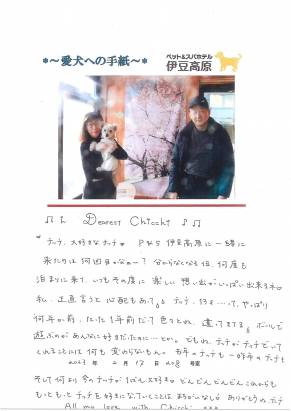 *～愛犬への手紙～*
ペット&スパホテル
伊豆高原
Dearest Chicchi
チッチ、大好きなチッチ♥ P&S 伊豆高原に一緒に
来たのは何回目かなぁー？分からなくなる位、何度も
泊まりに来て、いつもその度に楽しい想い出がいっぱい出来るね
私、正直言うと心配もある。チッチ、13才…って、やっぱり
何年か前、たった1年前だって色々とね、違ってきてる。ボールで
遊ぶのがあんなに好きだったのに…とか。でもね、チッチがチッチでいて
くれることには何も変わらないもん。
2023年 2月17日 208号室
そして何より今のチッチが1ばん大好き♥どんどんどんどんこれからも
もっともっとチッチも好きになっていくことはまちがいなし♥ありがとうのチッチ
All my love with Chicchi